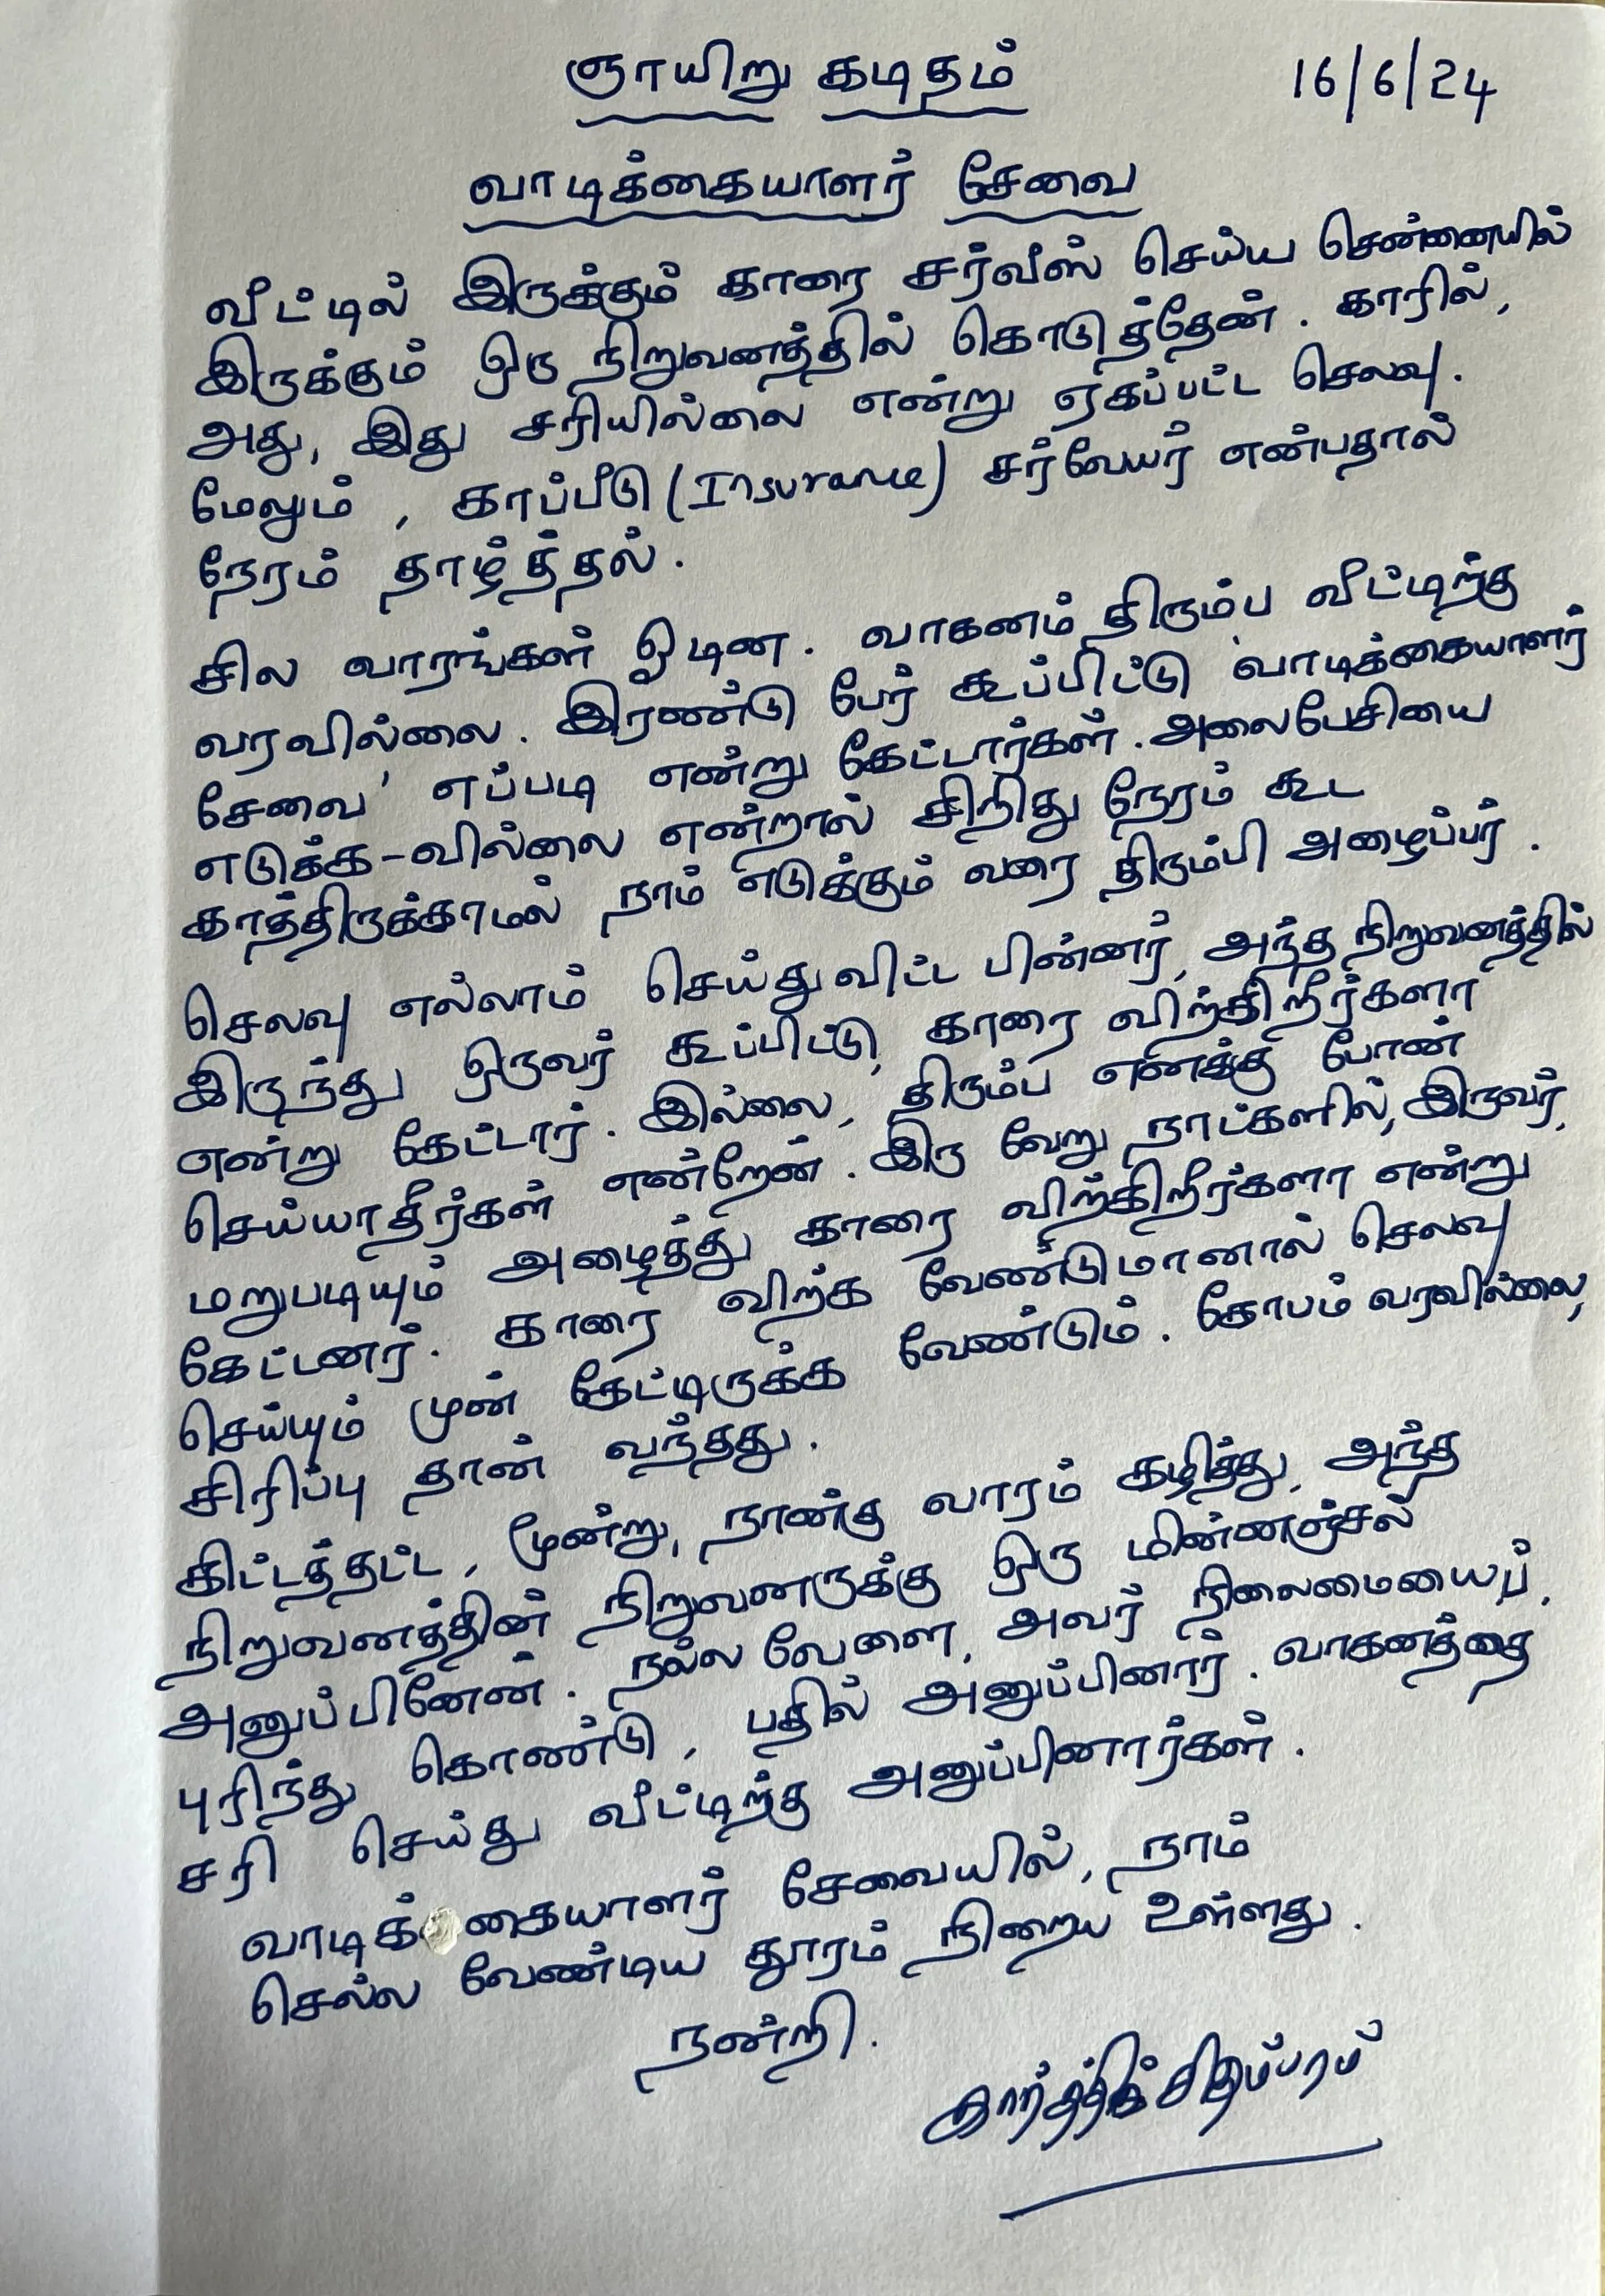 ஞாயிறு கடிதம் 16/6/24
வாடிக்கையாளர் சேவை
வீட்டில் இருக்கும் காரை சர்வீஸ் செய்ய சென்னையில்
இருக்கும் ஒரு நிறுவனத்தில் கொடுத்தேன். காரில்,
அது, இது சரியில்லை என்று ஏகப்பட்ட செலவு.
மேலும், காப்பீடு (Insurance) சர்வேயர் என்பதால்
நேரம் தாழ்த்தல்.
சில வாரங்கள் ஓடின. வாகனம் திரும்ப வீட்டிற்கு
வரவில்லை. இரண்டு பேர் கூப்பிட்டு 'வாடிக்கையாளர்
சேவை' எப்படி என்று கேட்டார்கள். அலைபேசியை
எடுக்க-வில்லை என்றால் சிறிது நேரம் கூட
காத்திருக்காமல் நாம் எடுக்கும் வரை திரும்பி அழைப்பர்.
செலவு எல்லாம் செய்துவிட்ட பின்னர், அந்த நிறுவனத்தில்
இருந்து ஒருவர் கூப்பிட்டு, காரை விற்கிறீர்களா
என்று கேட்டார். இல்லை, திரும்ப எனக்கு போன்
செய்யாதீர்கள் என்றேன். இரு வேறு நாட்களில், இருவர்,
மறுபடியும் அழைத்து காரை விற்கிறீர்களா என்று
கேட்டனர். காரை விற்க வேண்டுமானால் செலவு
செய்யும் முன் கேட்டிருக்க வேண்டும். கோபம் வரவில்லை,
சிரிப்பு தான் வந்தது.
கிட்டத்தட்ட, மூன்று, நான்கு வாரம் கழித்து, அந்த
நிறுவனத்தின் நிறுவனருக்கு ஒரு மின்னஞ்சல்
அனுப்பினேன். நல்ல வேளை, அவர் நிலைமையைப்,
புரிந்து கொண்டு, பதில் அனுப்பினார். வாகனத்தை
சரி செய்து வீட்டிற்கு அனுப்பினார்கள்.
வாடிக்கையாளர் சேவையில், நாம்
செல்ல வேண்டிய தூரம் நிறைய உள்ளது.
நன்றி.
கார்த்திக் சிதம்பரம்